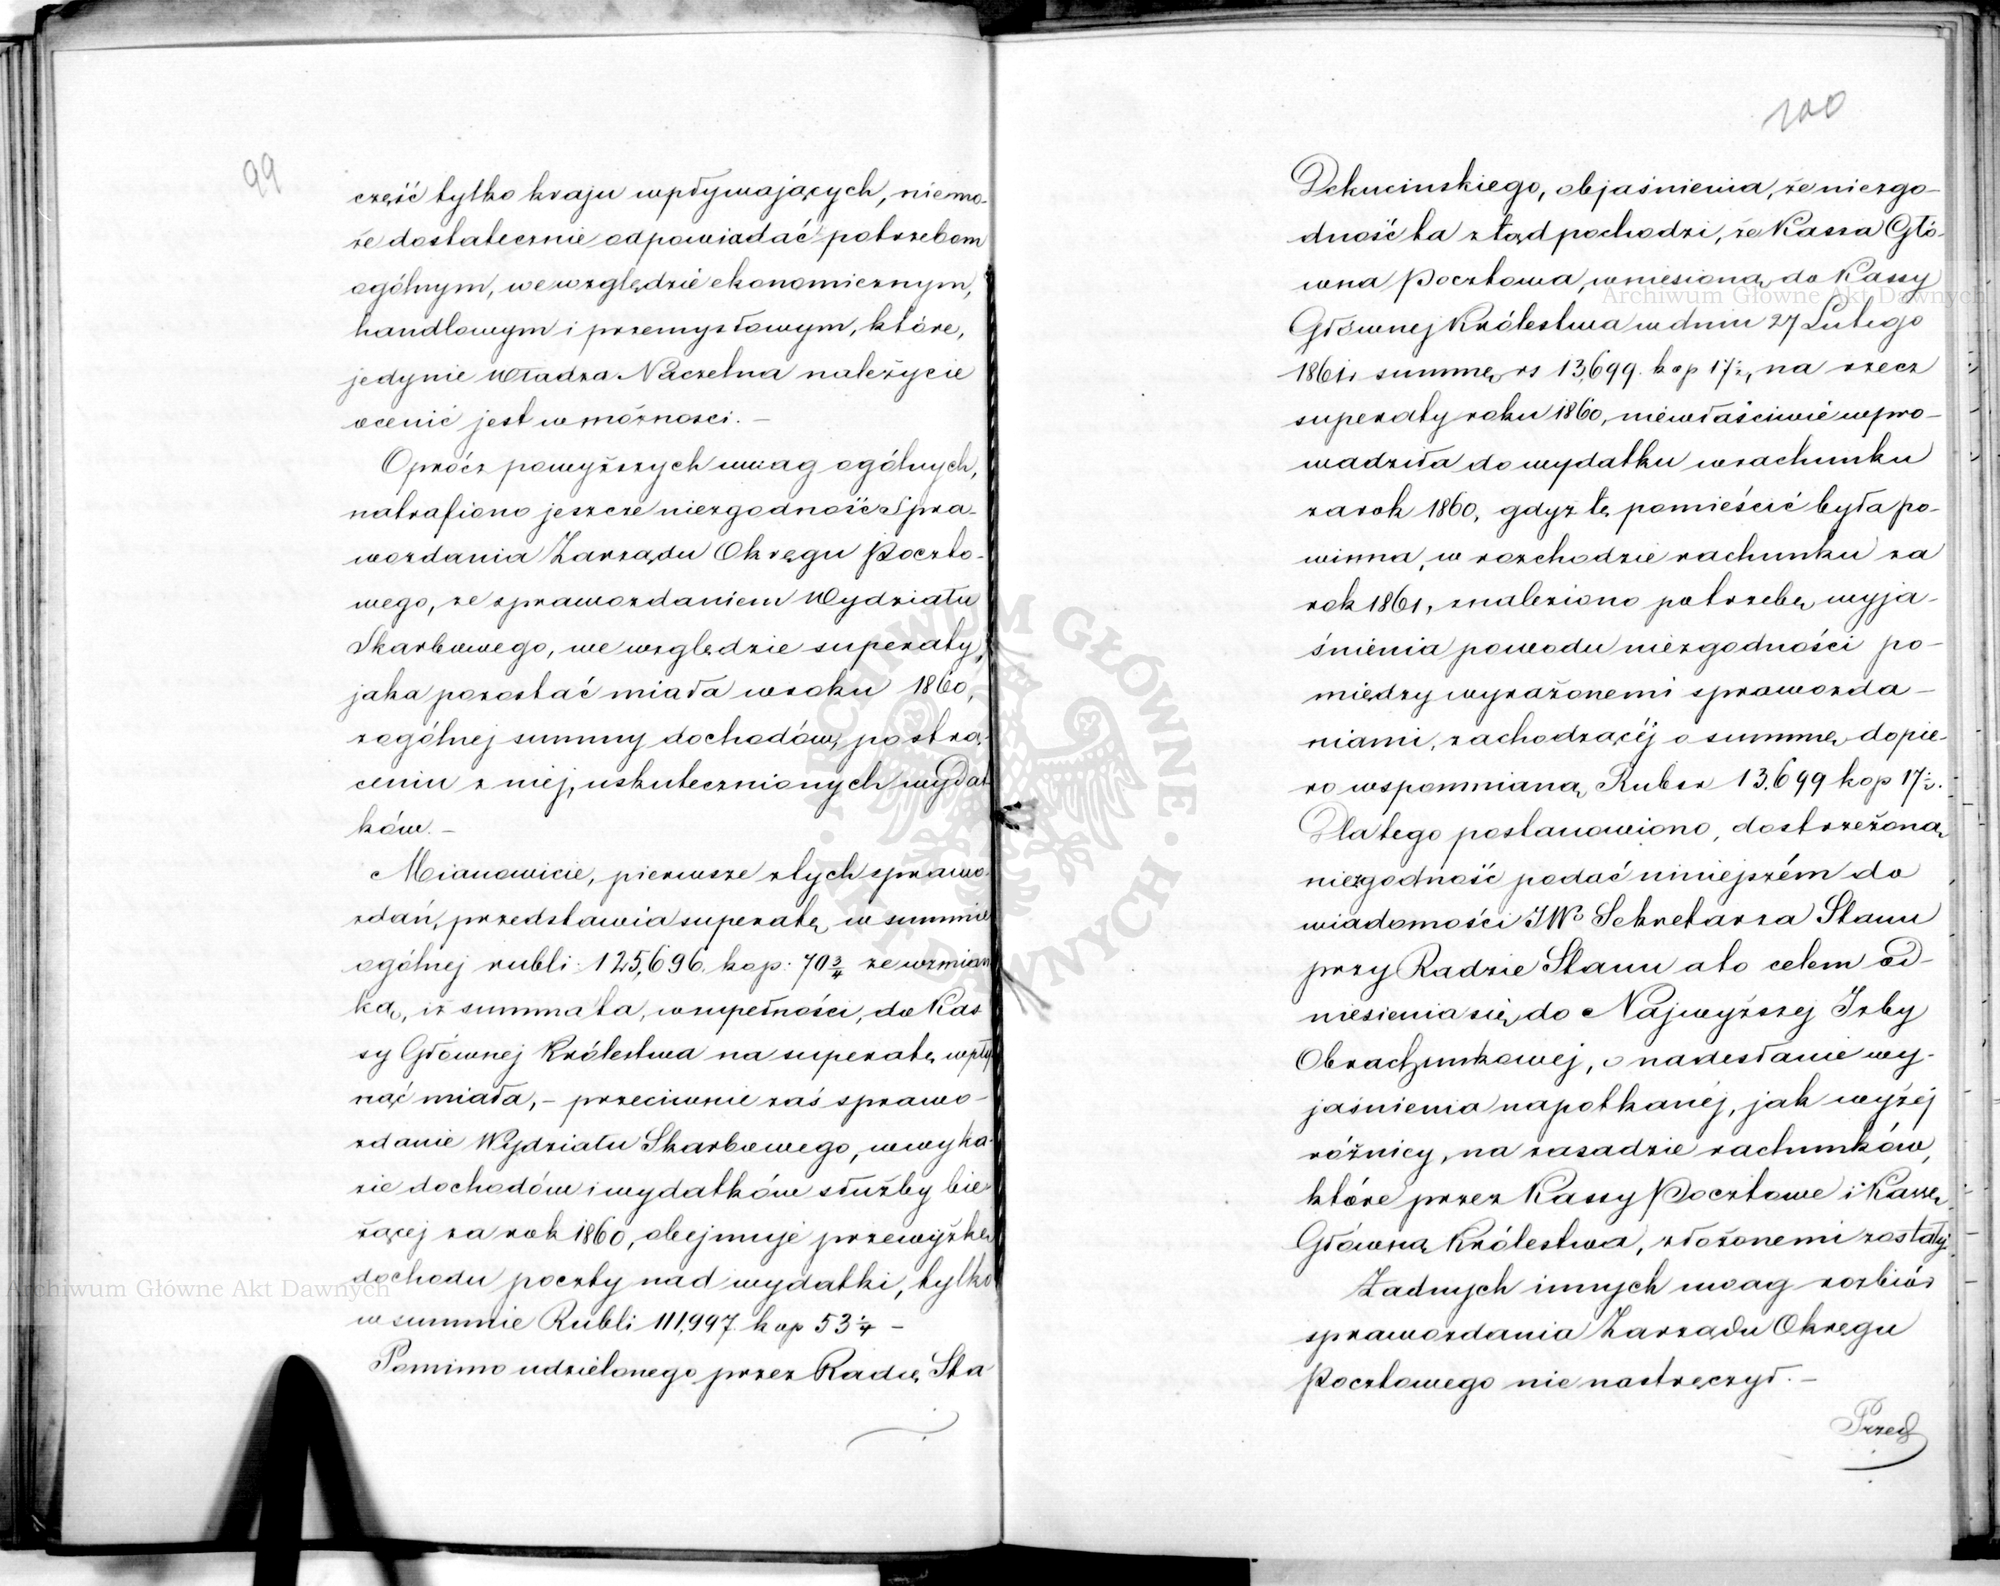 99
część tylko kraju wpływających, niemo-
że dostatecznie odpowiadać potrzebom
ogólnym, we względzie ekonomicznym,
handlowym i przemysłowym, które,
jedynie Władza Naczelna należycie
ocenić jest w możnosci. –
Oprócz powyższych uwag ogólnych,
natrafiono jeszcze niezgodność Spra-
wozdania Zarządu Okręgu Poczto-
wego, ze sprawozdaniem Wydziału
Skarbowego, we względzie superaty,
jaka pozostać miała w roku 1860,
z ogólnej summy dochodów, po stra-
ceniu z niej, uskutecznionych wydat
ków. –
Mianowicie, pierwsze z tych sprawo-
zdań, przedstawia superatę, w summie
ogólnej rubli 125,696. kop. 70 3/4 ze wzmian
ką, iż summa ta, w zupełności, do Kas
sy Głównej Królestwa na superatę wpły
nąć miała, – przeciwnie zaś sprawo-
zdanie Wydziału Skarbowego, w wyka-
zie dochodów i wydatków służby bie-
żącej za rok 1860, obejmuje przewyżkę
dochodu poczty nad wydatki, tylko
w summie Rubli 111,997. kop 53 1/4 –
Pomimo udzielonego przez Radcę Sta
100
objaśnienia, że niezgo-
dność ta ztąd pochodzi, że Kassa Głó-
wna Pocztowa, wniesioną do Kassy
Głównej Królestwa w dniu 27 Lutego
1861 r. summę rs 13,699. kop 17 1/2, na rzecz
superaty roku 1860, niewłaściwie wpro-
wadziła do wydatku w rachunku
za rok 1860, gdyż tę pomieścić była po-
winna, w rozchodzie rachunku za
rok 1861, znaleziono potrzebę wyja-
śnienia powodu niezgodności po-
między wyrażonemi sprawozda-
niami, zachodzącéj o summę dopie-
ro wspomnianą Rubsr 13,699 kop 17 1/2.
Dlatego postanowiono, dostrzeżoną
niezgodność podać niniejszém do
wiadomości JWo Sekretarza Stanu
przy Radzie Stanu a to celem od-
niesienia się do Najwyższej Izby
Obrachunkowej, o nadesłanie wy-
jaśnienia napotkanéj, jak wyżéj
różnicy, na zasadzie rachunków,
które przez Kassy Pocztowe i Kassę
Główną Królestwa, złożonemi zostały.
Żadnych innych uwag rozbiór
sprawozdania Zarządu Okręgu
Pocztowego nie nastręczył. –
Przed
Archiwum Główne Akt Dawnych
Archiwum Główne Akt Dawnych
ARCHIWUM GŁÓWNE AKT DAWNYCH